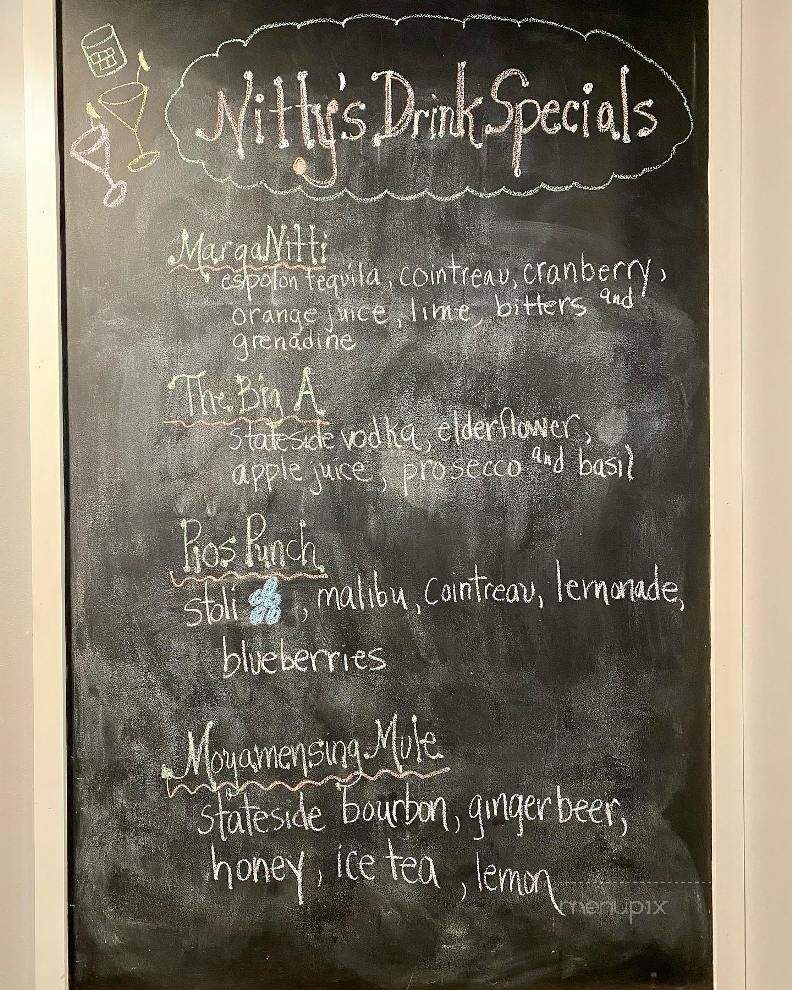 Nitty's Drink Specials
MargaNitti
espolon tequila, cointreau, cranberry,
orange juice, lime, bitters and
grenadine
The Big A
stateside vodka, elderflower,
apple juice, prosecco and basil
Pios Punch
stoli , malibu, Cointreau, lemonade,
blueberries
Moyamensing Mule
stateside bourbon, ginger beer,
honey, ice tea, lemon
menupix